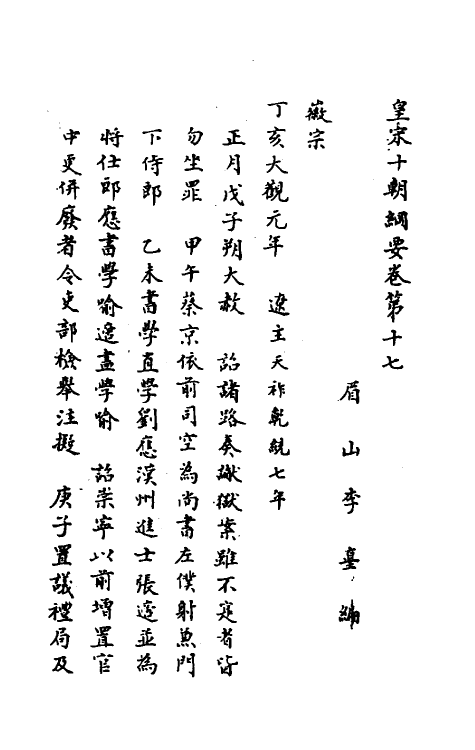 皇宋十朝綱要卷第十七
眉山李𡌴編
徽宗
丁亥大觀元年　遼主天祚乾統七年
正月戊子朔大赦　詔諸路奏讞獄案雖不寔者皆
勿坐罪　甲午蔡京依前司空為尚書左僕射兼門
下侍郎　乙未書學直學劉應漢州進士張邃並為
將仕郎應書學喻邃畫學喻　詔崇寧以前増置官
中更併廢者令吏部檢舉注擬　庚子置議禮局及